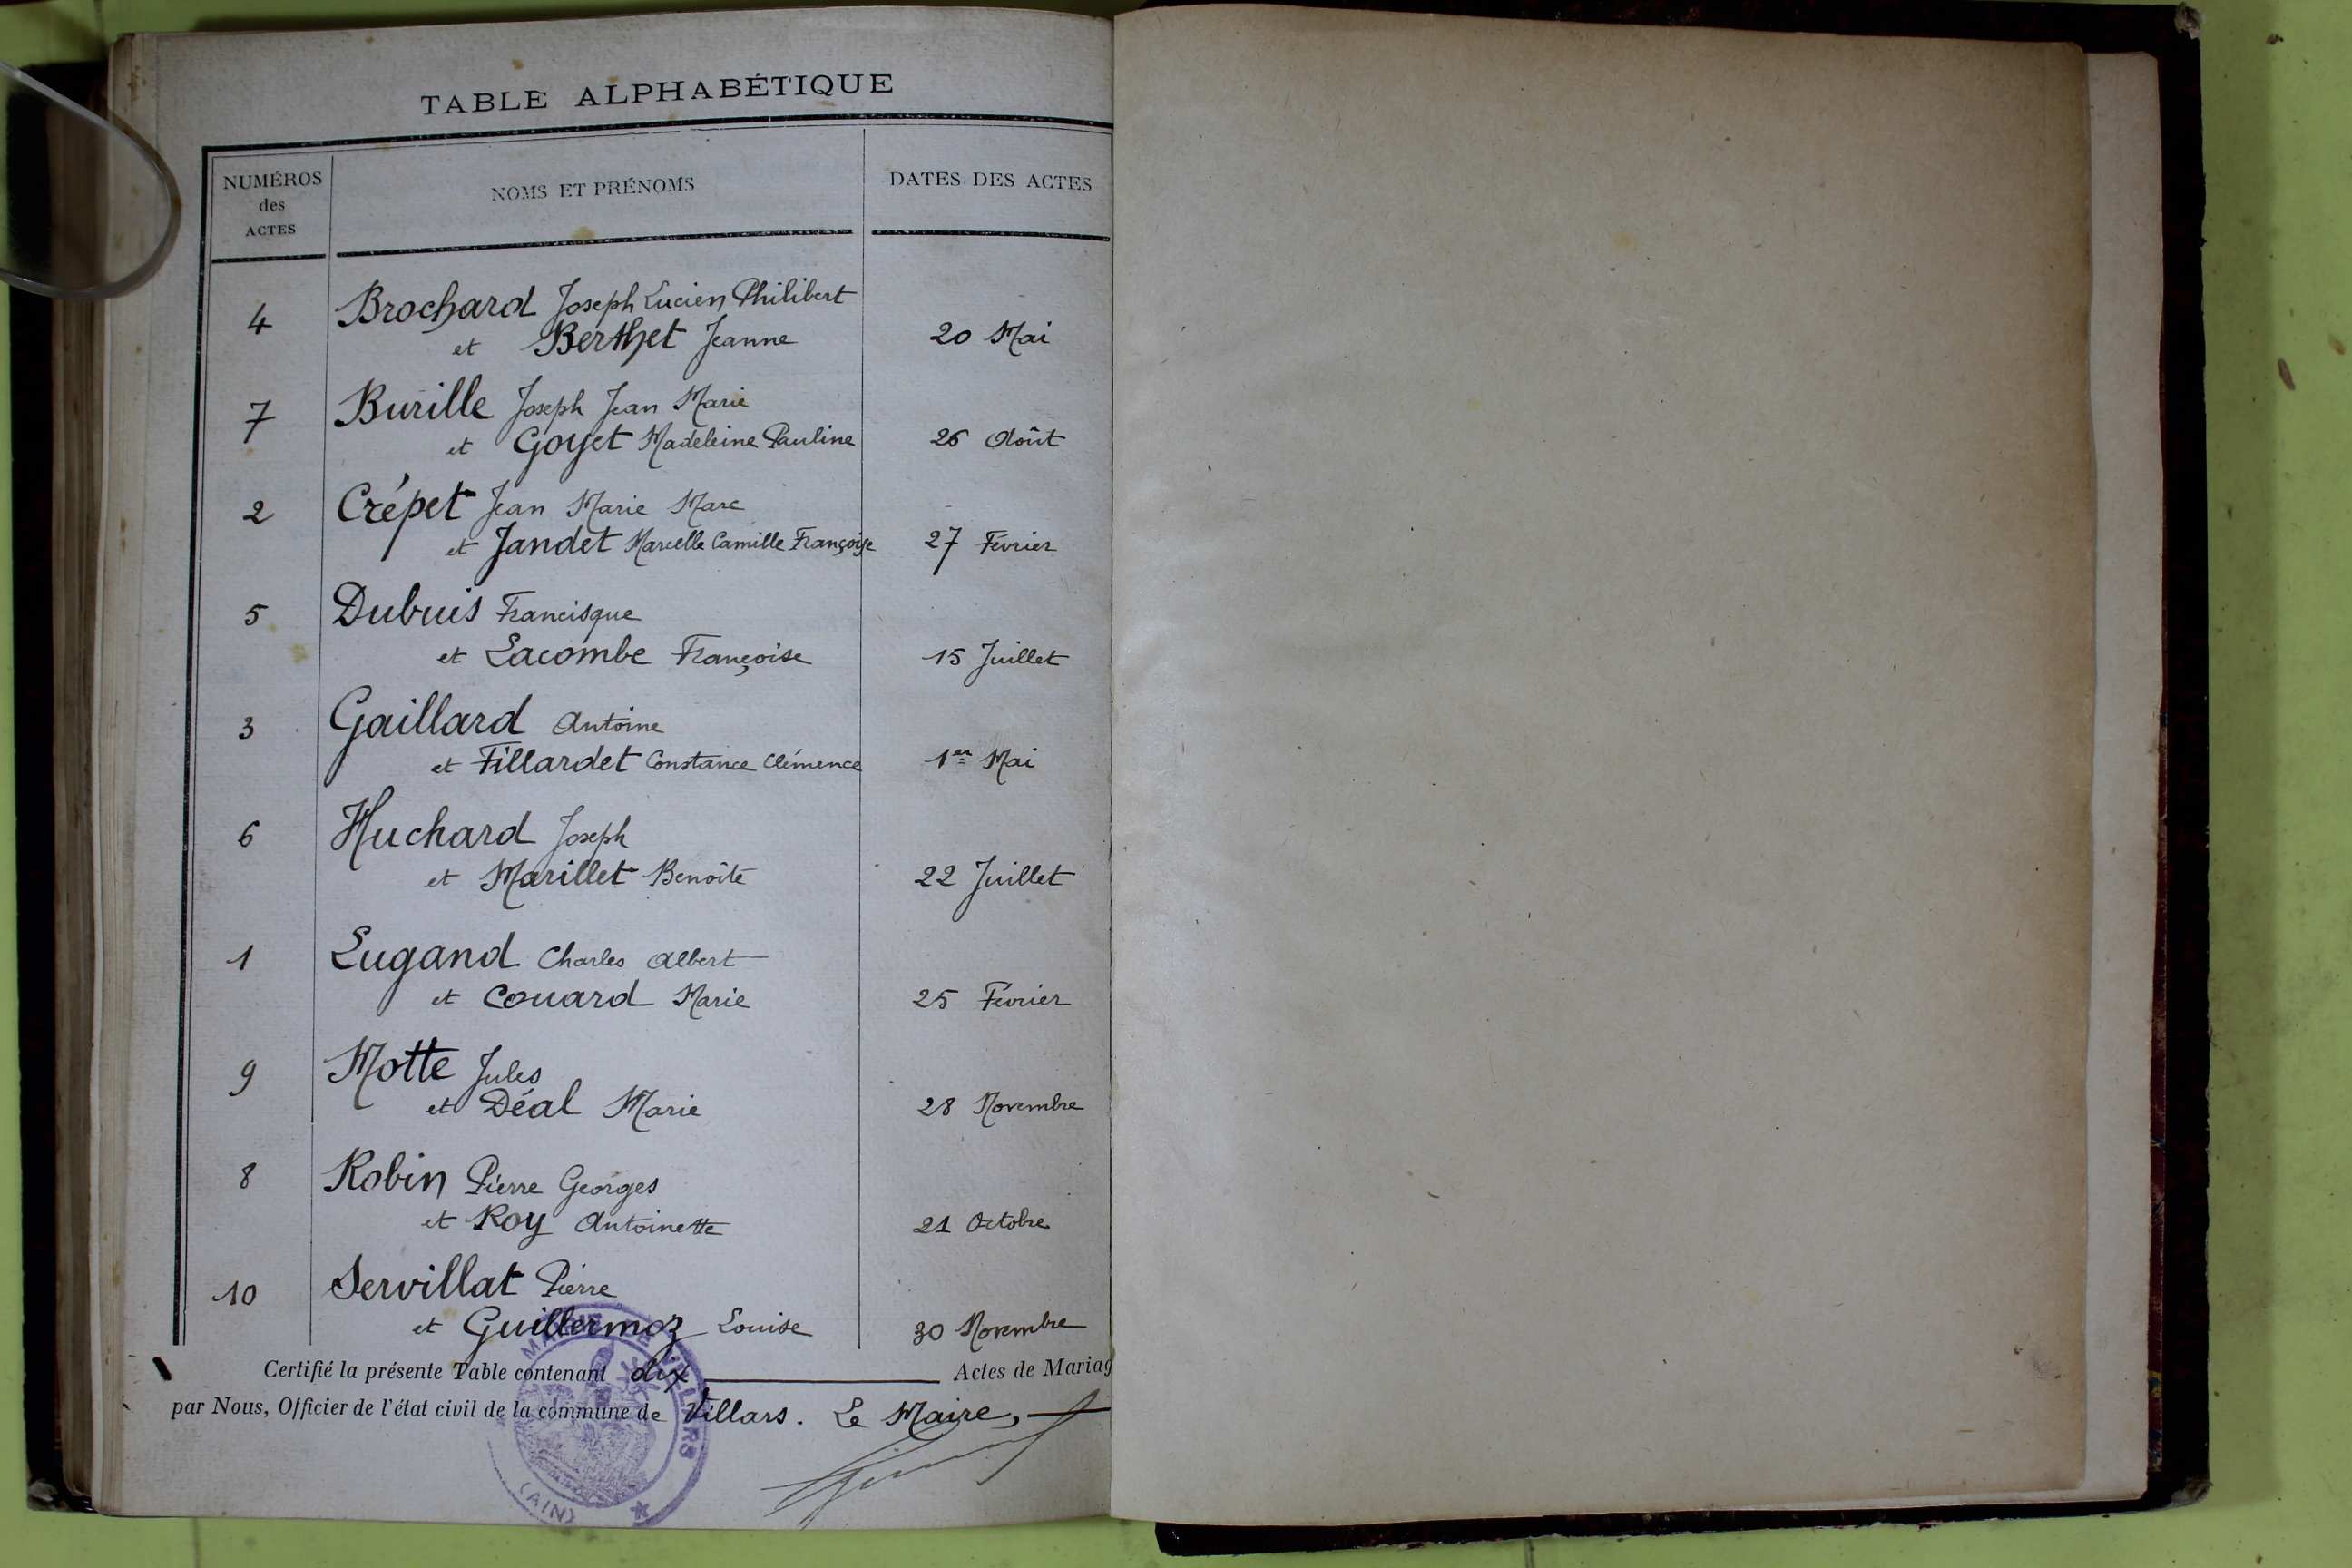 TABLE ALPHABÉTIQUE
NUMÉROS
des
ACTES
NOMS ET PRÉNOMS
DATES DES ACTES
4 Brochard Joseph Lucien Philibert
et Berthet Jeanne 20 Mai
7 Burille Joseph Jean Marie
et Goyet Madeleine Pauline 26 Août
2 Crépet Jean Marie Marc
et Jandet Marcelle Camille Françoise 27 Février
5 Dubuis Francisque
et Lacombe Françoise 15 Juillet
3 Gaillard Antoine
et Fillardet Constance Clémence 1er Mai
6 Huchard Joseph
et Marillet Benoîte 22 Juillet
1 Lugand Charles Albert
et Couard Marie 25 Février
9 Motte Jules
et Déal Marie 28 Novembre
8 Robin Pierre Georges
et Roy Antoinette 21 Octobre
10 Servillat Pierre
et Guillermoz Louise 30 Novembre
Certifié la présente Table contenant dix Actes de Mariag
par Nous, Officier de l'état civil de la commune de Villars. Le Maire,
MAIRIE DE VILLARS
(AIN)